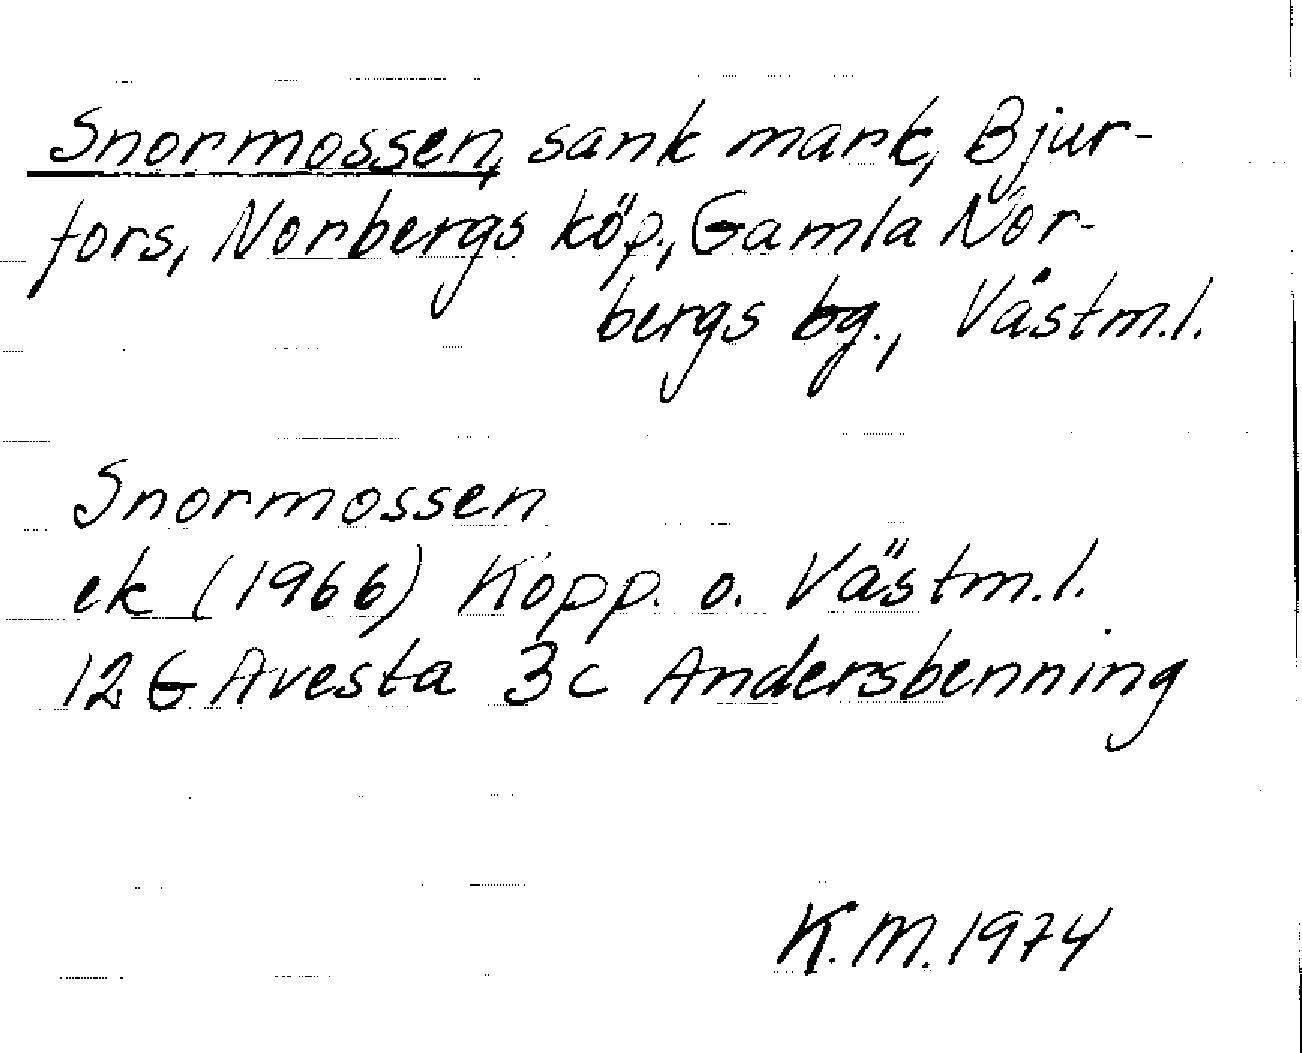 Snormossen, sank mark, Bjur-
fors, Norbergs köp., Gamla Nor-
bergs bg., Västm.l.
Snormossen
ek (1966) Kopp. o. Västm.l.
12 G Avesta 3c Andersbenning
K.M. 1974